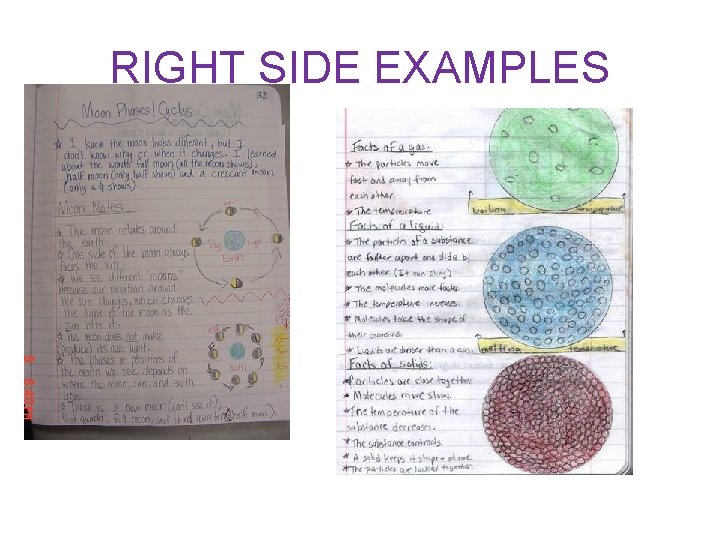 RIGHT SIDE EXAMPLES
23
Moon Phases/Cycles
I know the moon looks different, but I
don't know why or when it changes. I learned
about the words full moon (all the moon shows),
half moon (only half shows) and a crescent moon
(only a shows).
Moon Notes
The moon rotates around
the earth.
One side of the moon always
faces the sun.
We see different "moons"
because our position around
the sun changes, which changes
the light of the moon as the
sun hits it.
The moon does not make
(produce) its own light.
The phases or positions of
the moon we see depends on
where the moon, sun, and earth
are.
There is a new moon (can't see it),
first quarter, full moon, and third quarter (half moon).
Day
Night
Earth
Earth
Facts of a gas:
The particles move
fast and away from
each other.
The temperature
Facts of a liquid:
The particles of a substance
are farther apart and slide by
each other (It can cling)
The molecules move faster.
The temperature increases.
Molecules take the shape of
their container.
Liquids are denser than a gas.
Facts of solids:
Particles are close together.
Molecules move slow.
The temperature of the
substance decreases.
The substance contracts.
A solid keeps it shape + volume
The particles are locked together.
boiling temperature
melting temperature